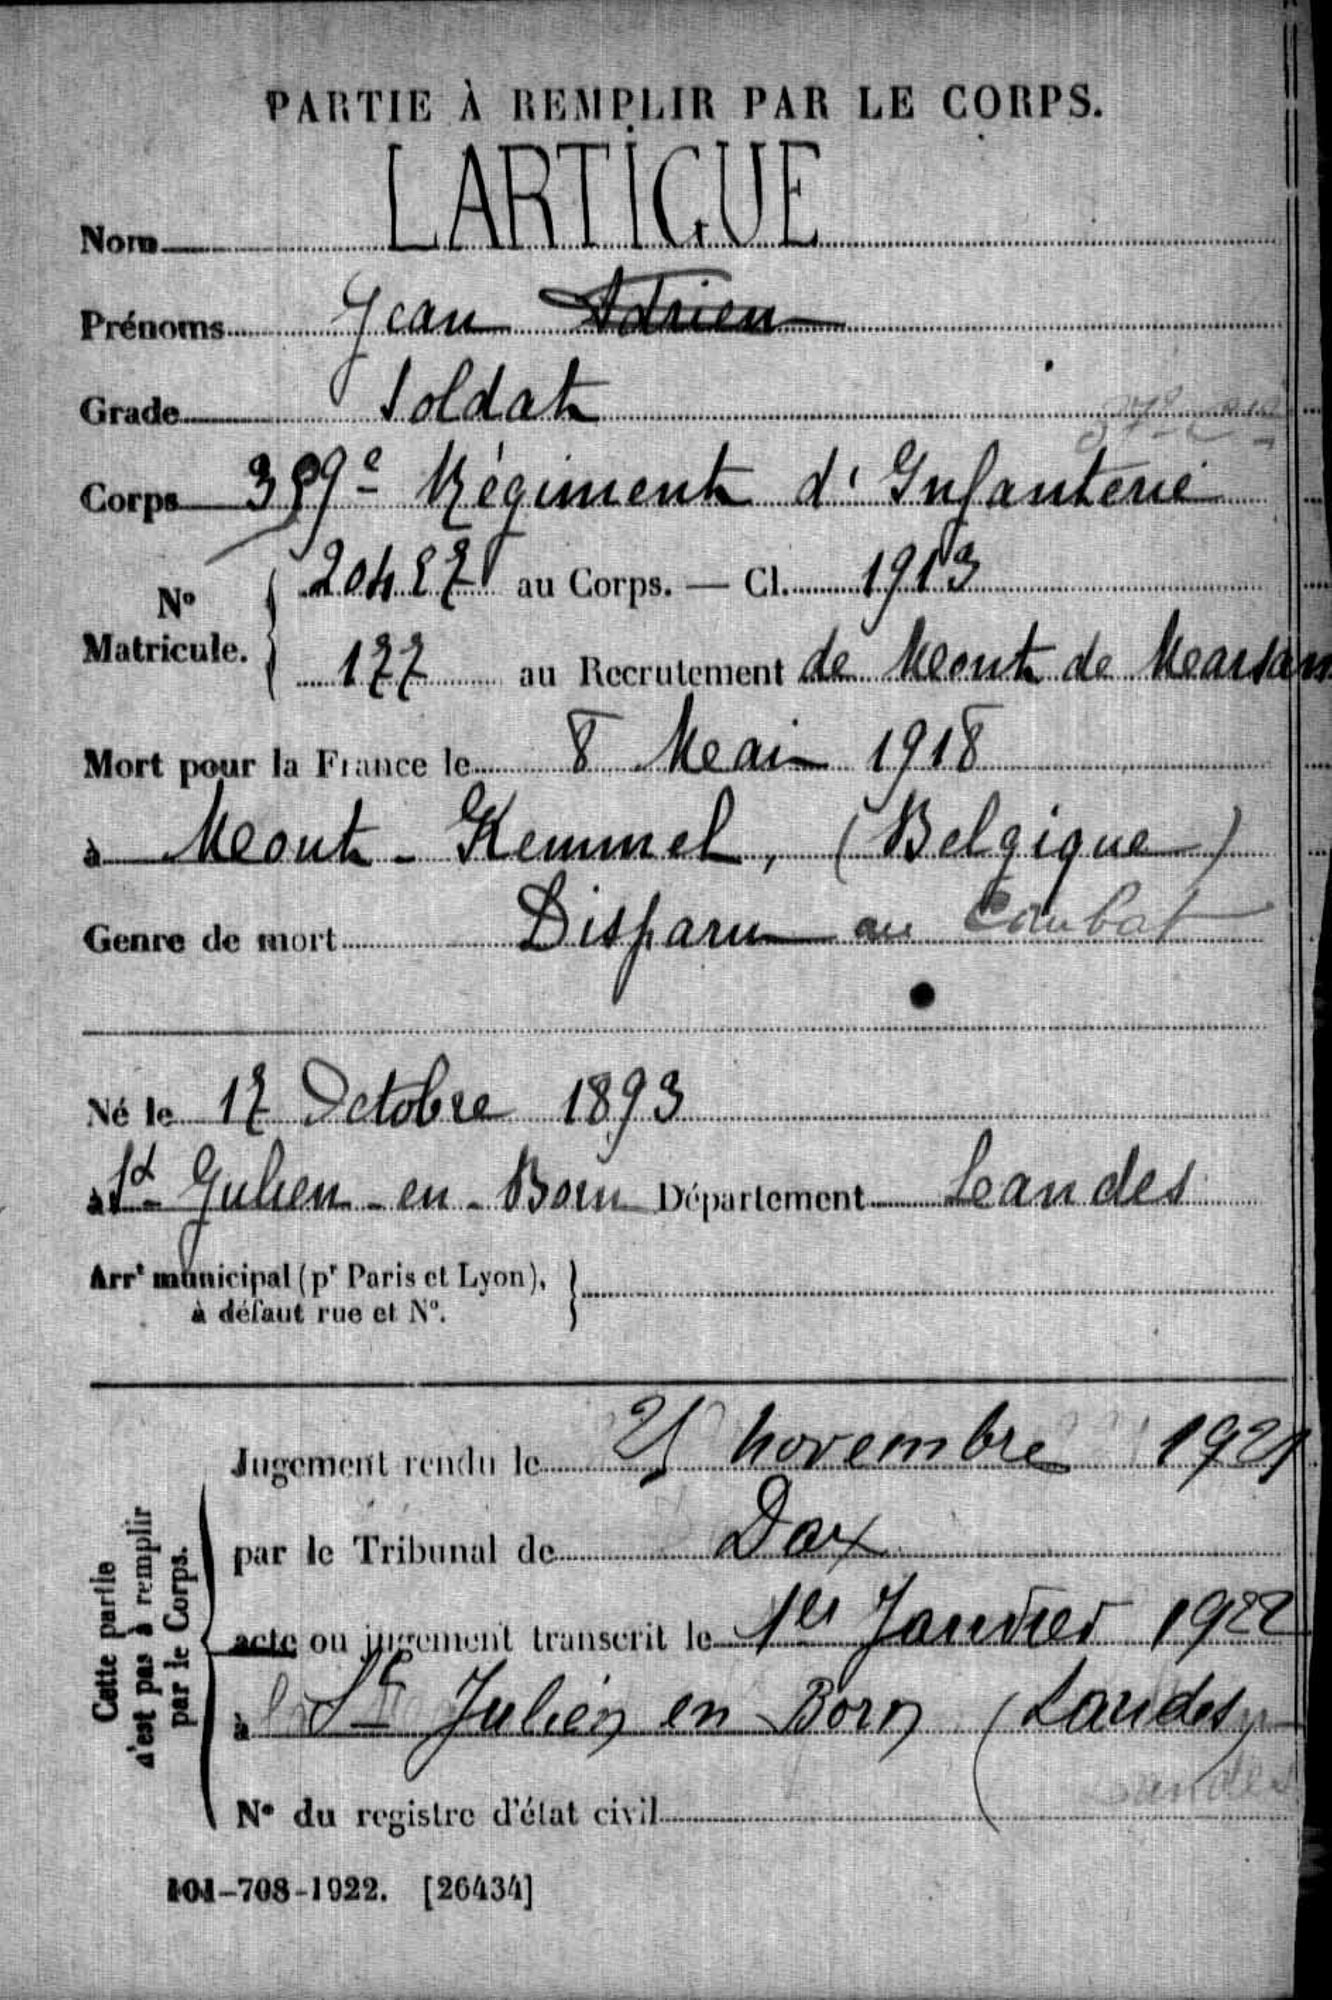 PARTIE À REMPLIR PAR LE CORPS.
Nom LARTIGUE
Prénoms Jean Adrien
Grade Soldat
Corps 359e Régiment d'Infanterie
No Matricule. { 20427 au Corps. — Cl. 1913
177 au Recrutement de Mont de Marsan
Mort pour la France le 8 Mai 1918
à Mont-Kemmel, (Belgique)
Genre de mort Disparu au Combat
Né le 17 Octobre 1893
à St-Julien-en-Born Département Landes
Arrt municipal (pr Paris et Lyon), }
à défaut rue et No.
Cette partie
n'est pas à remplir
par le Corps.
Jugement rendu le 25 novembre 1921
par le Tribunal de Dax
acte ou jugement transcrit le 1er Janvier 1922
à St Julien en Born (Landes)
Landes
No du registre d'état civil
101-708-1922. [26434]